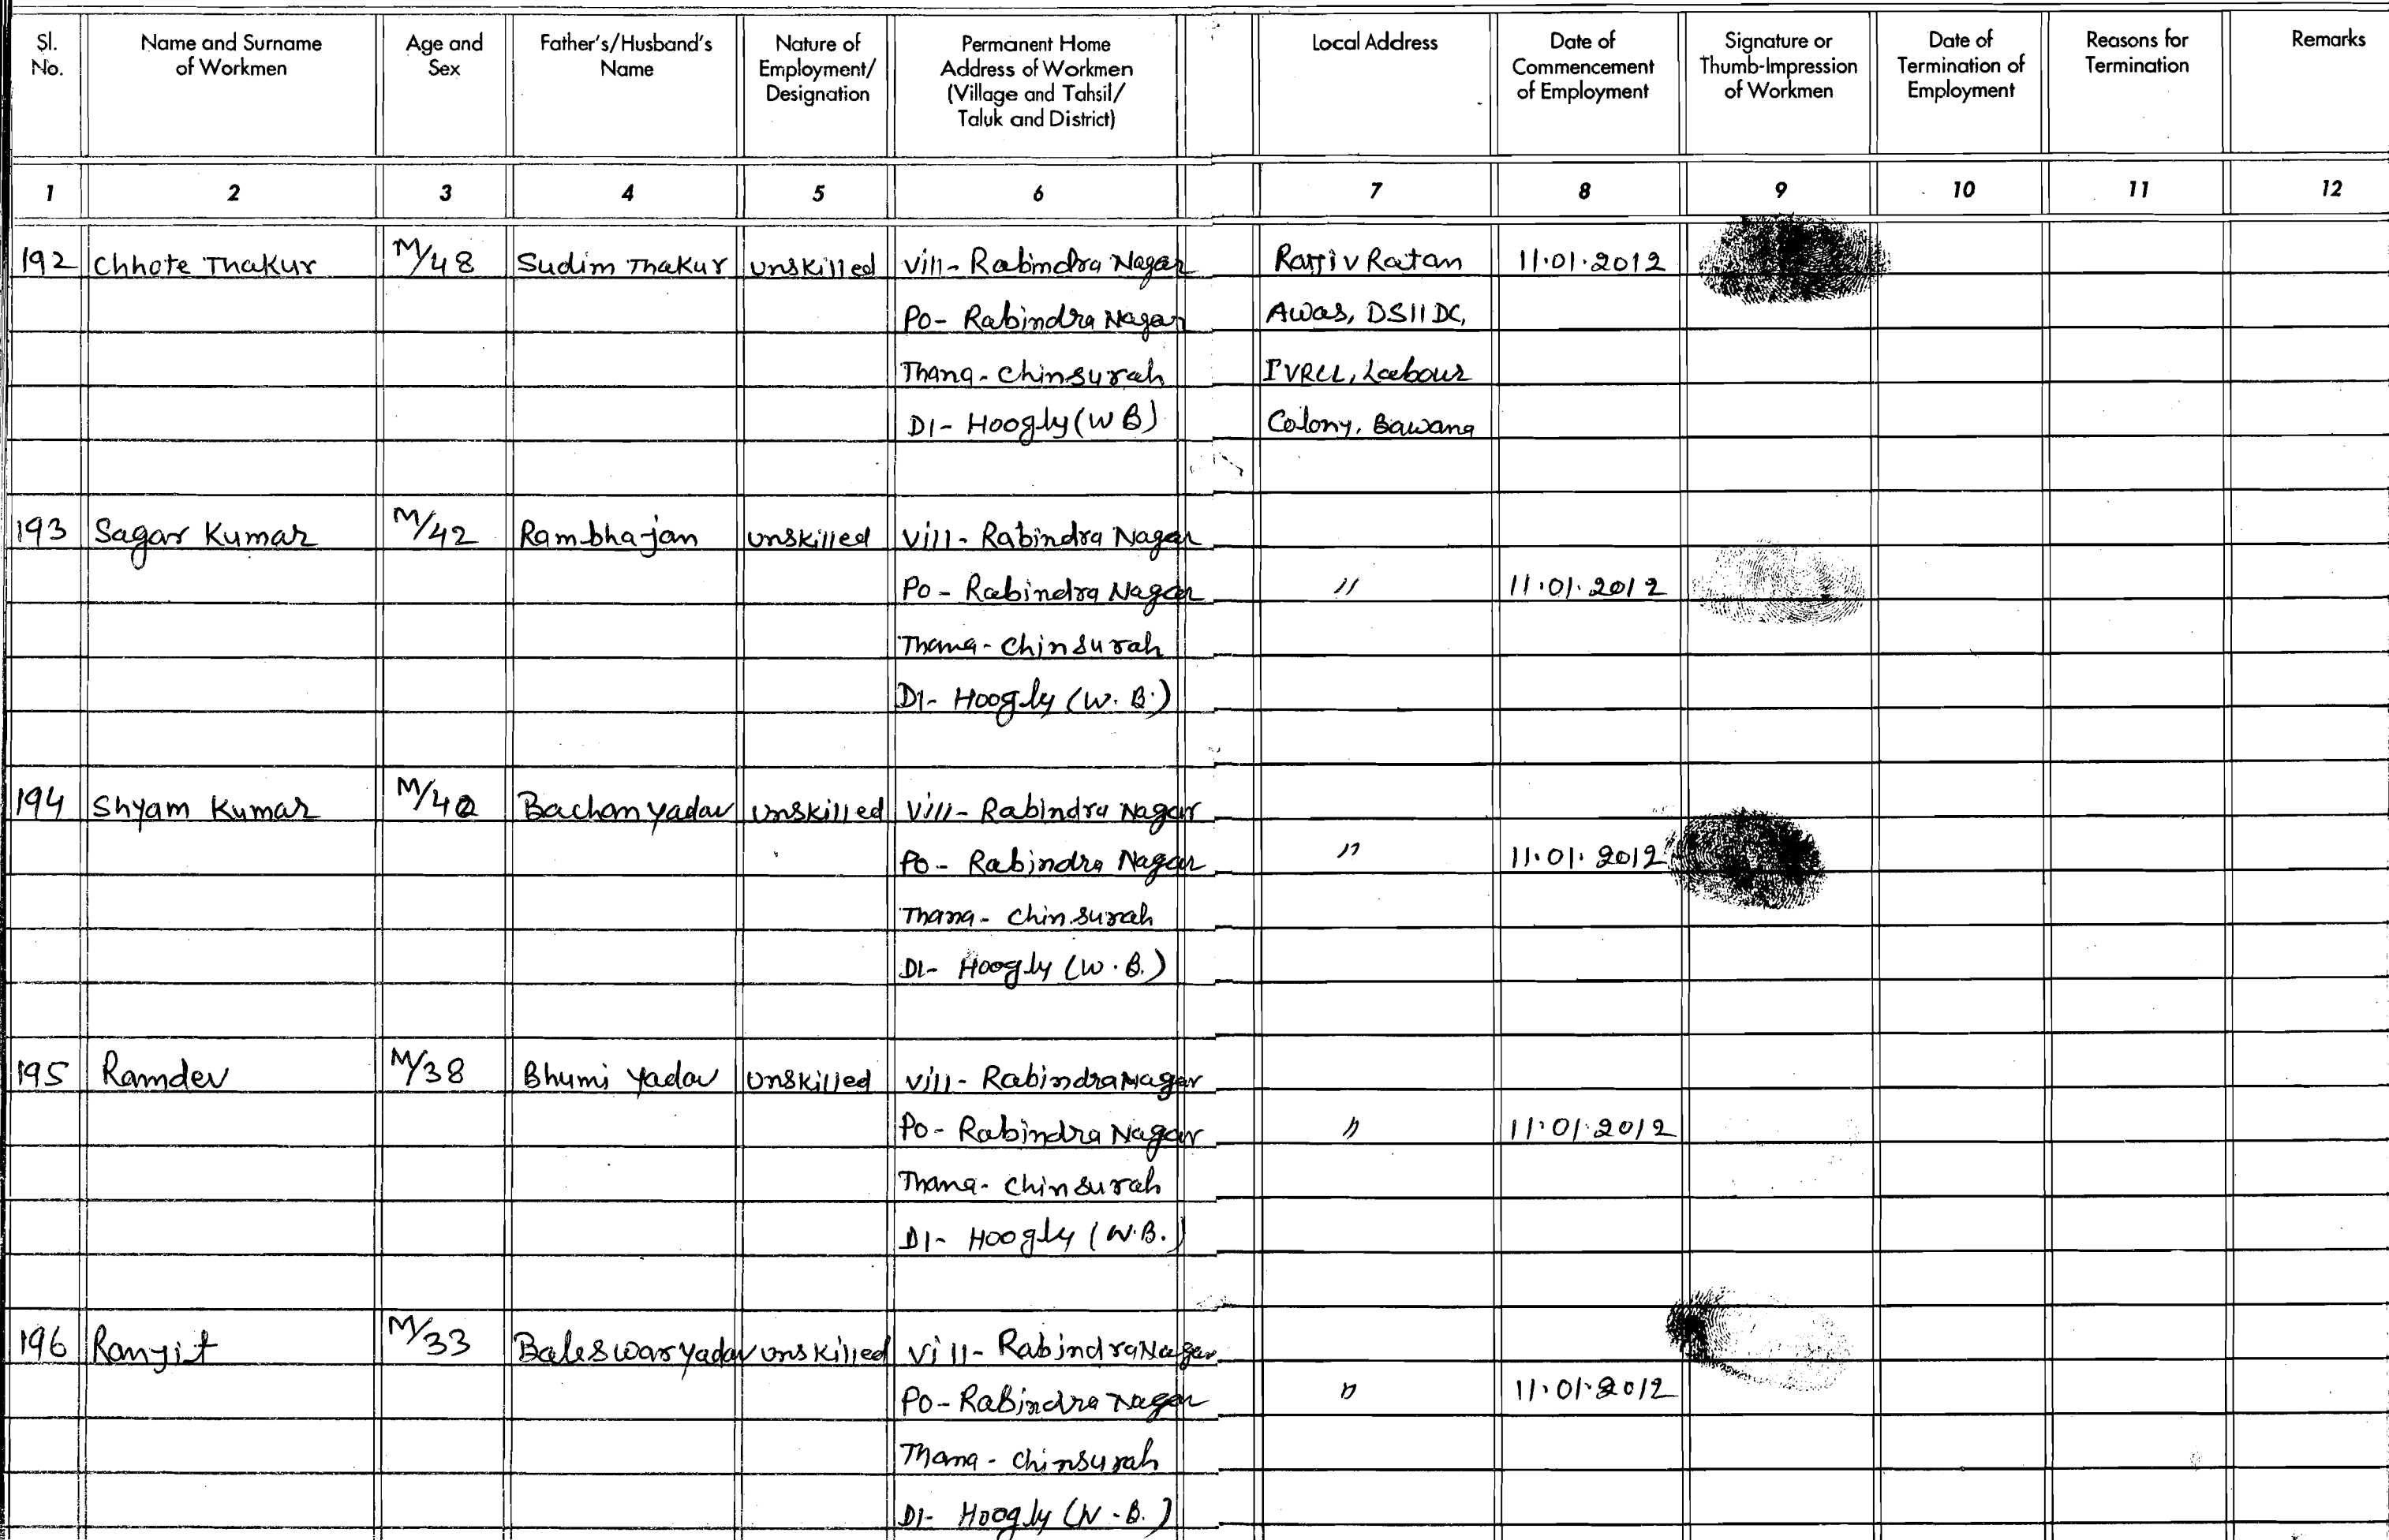 Sl. No. Name and Surname of Workmen Age and Sex Father's/Husband's Name Nature of Employment/ Designation Permanent Home Address of Workmen (Village and Tahsil/ Taluk and District) Local Address Date of Commencement of Employment Signature or Thumb-Impression of Workmen Date of Termination of Employment Reasons for Termination Remarks
1 2 3 4 5 6 7 8 9 10 11 12
192 Chhote Thakur M/48 Sudim Thakur unskilled Vill- Rabindra Nagar Rajiv Ratan 11.01.2012
Po- Rabindra Nagar Awas, DSIIDC,
Thana- Chinsurah IVRCL, Labour
DI- Hoogly (WB) Colony, Bawana
193 Sagar Kumar M/42 Rambhajan unskilled Vill- Rabindra Nagar
Po- Rabindra Nagar " 11.01.2012
Thana- Chinsurah
DI- Hoogly (W.B.)
194 Shyam Kumar M/40 Bachan Yadav unskilled Vill- Rabindra Nagar
Po- Rabindra Nagar " 11.01.2012
Thana- Chinsurah
DI- Hoogly (W.B.)
195 Ramdev M/38 Bhumi Yadav unskilled Vill- Rabindra Nagar
Po- Rabindra Nagar " 11.01.2012
Thana- Chinsurah
DI- Hoogly (W.B.)
196 Ranjit M/33 Baleswar Yadav unskilled Vill- Rabindra Nagar
Po- Rabindra Nagar " 11.01.2012
Thana- Chinsurah
DI- Hoogly (W.B.)